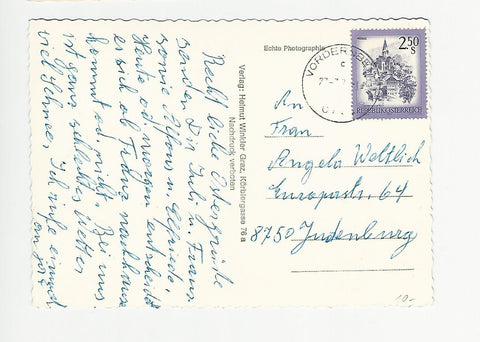 Recht liebe Ostergrüße
senden Dir Juli u. Franz
sowie Alfons u. Elfriede,
Heute od. morgen entscheidet
er sich ob Franz nachhause
kommt od. nicht. Bei uns
ist ganz schlechtes Wetter
viel Schnee, Ich rufe einmal
an
Verlag: Helmut Winkler Graz, Körblergasse 76 a
Nachdruck verboten
Echte Photographie
VORDERNBERG
2.50 S
REPUBLIK ÖSTERREICH
An
Frau
Angela Weitlich
Europastr. 64
8750 Judenburg
10.-